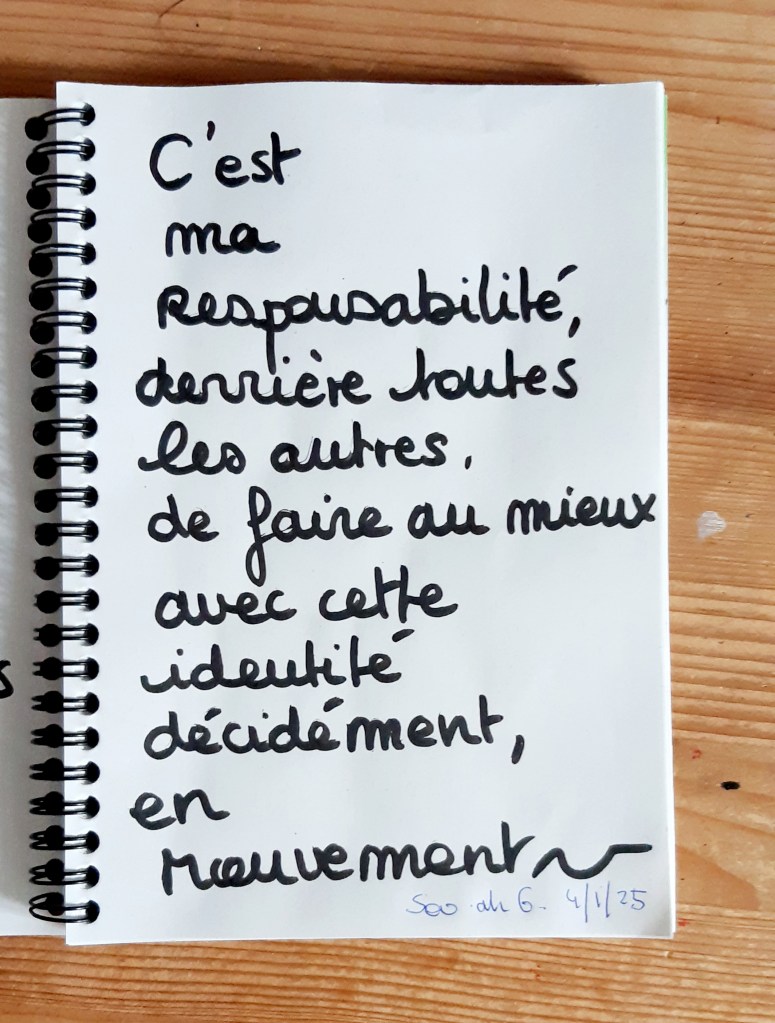 C'est
ma
responsabilité,
derrière toutes
les autres,
de faire au mieux
avec cette
identité
décidément,
en
mouvement
G. 4/1/25
s